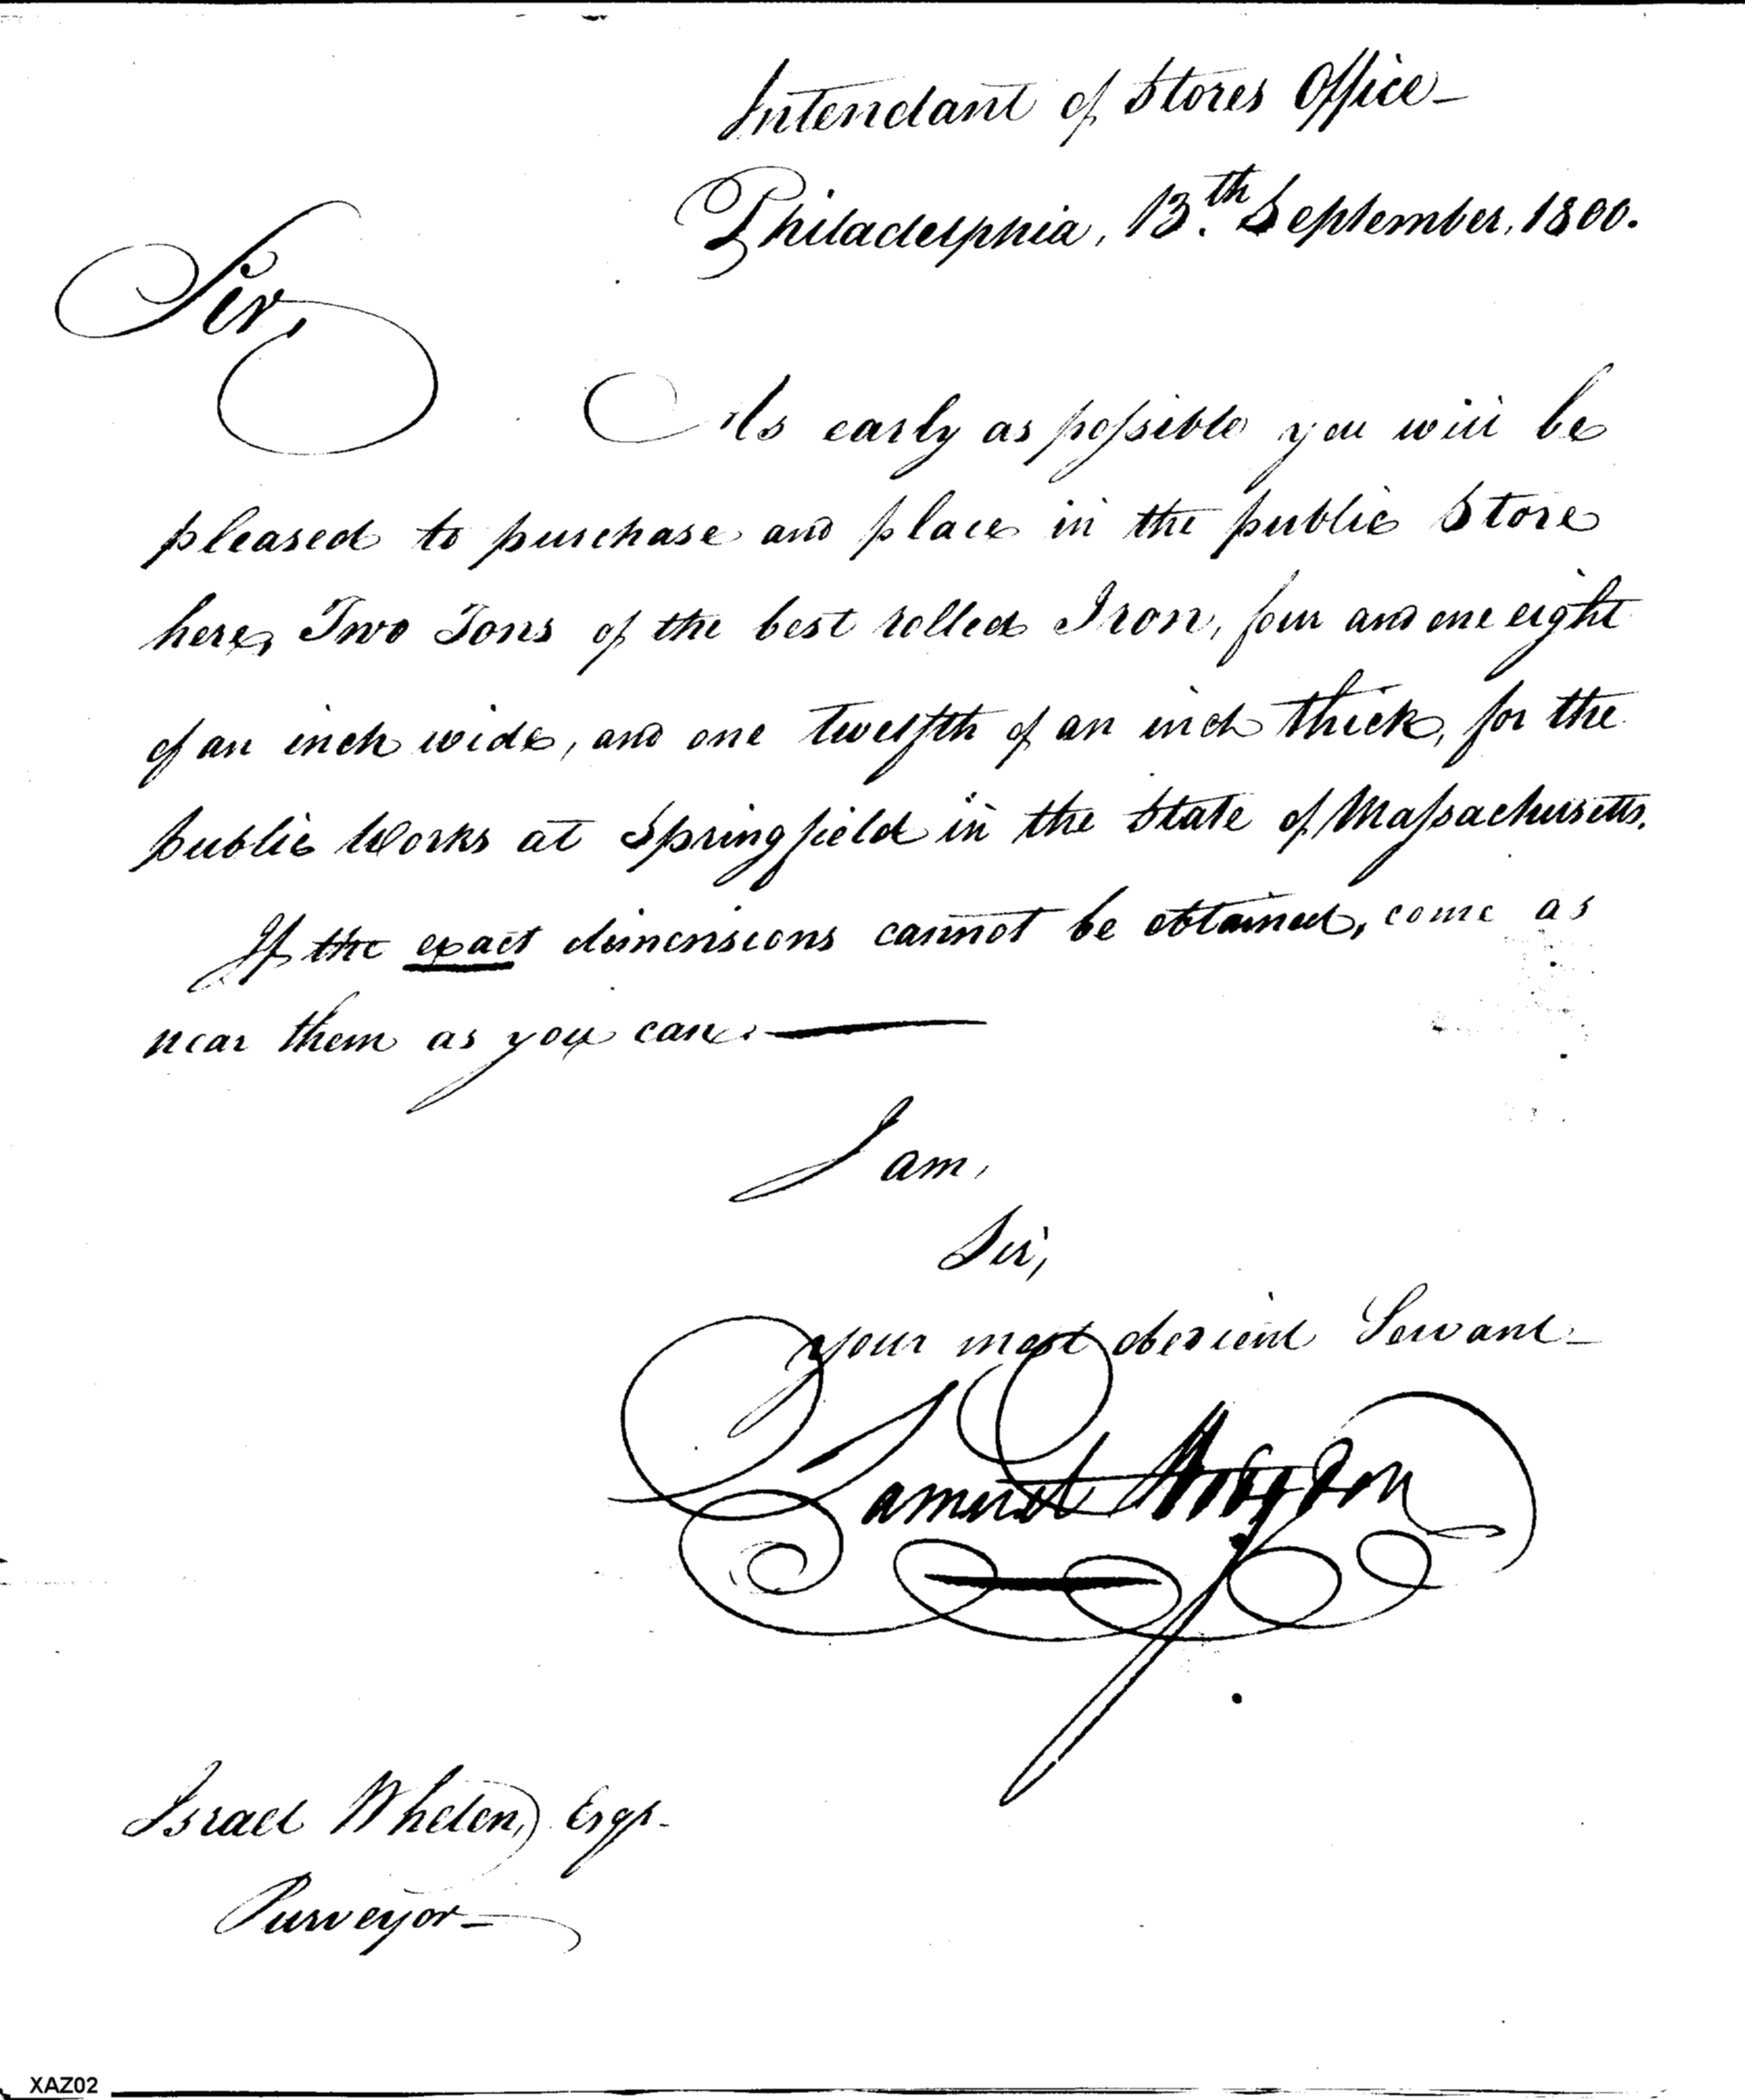 Intendant of Stores Office-
Philadelphia, 13.th September, 1800.
Sir,
As early as possible you will be
pleased to purchase and place in the public Store
here, Two Tons of the best rolled Iron, four and one eight
of an inch wide, and one twelfth of an inch thick, for the
public Works at Springfield in the State of Massachusetts.
If the exact dimensions cannot be obtained, come as
near them as you can.—
I am,
Sir,
your most obedient Servant-
Samuel Hodgdon
Israel Whelen, Esqr.
Purveyor-
XAZ02